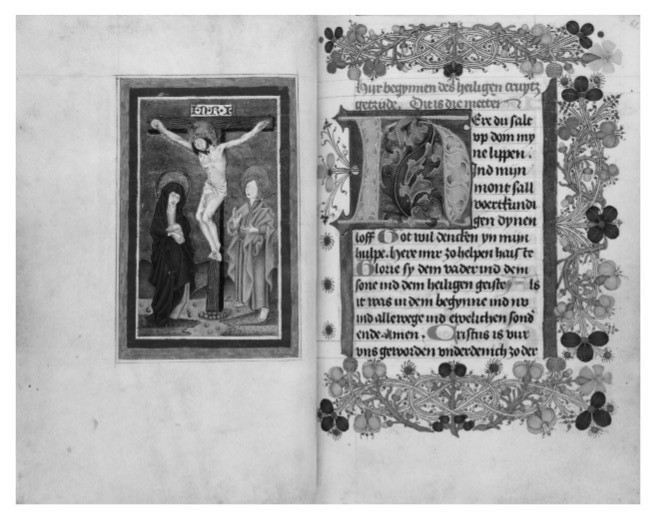 INRI
Hyr begynnen des heiligen cruytz
getzide. Dit is die metten
HEre du salt
vp doin my
ne lippen.
Ind mijn
mont sall
voertkundi
gen dynen
loff God wil dencken yn mijn
hulpe. here mir zo helpen haiste
Glorie sy dem vader ind dem
sone ind dem heiligen geiste Als
it was in dem begynne ind nv
ind allewege ind ewelichen sond
ende. Amen. Cristus is vur
vns geworden vnderdenich zo der